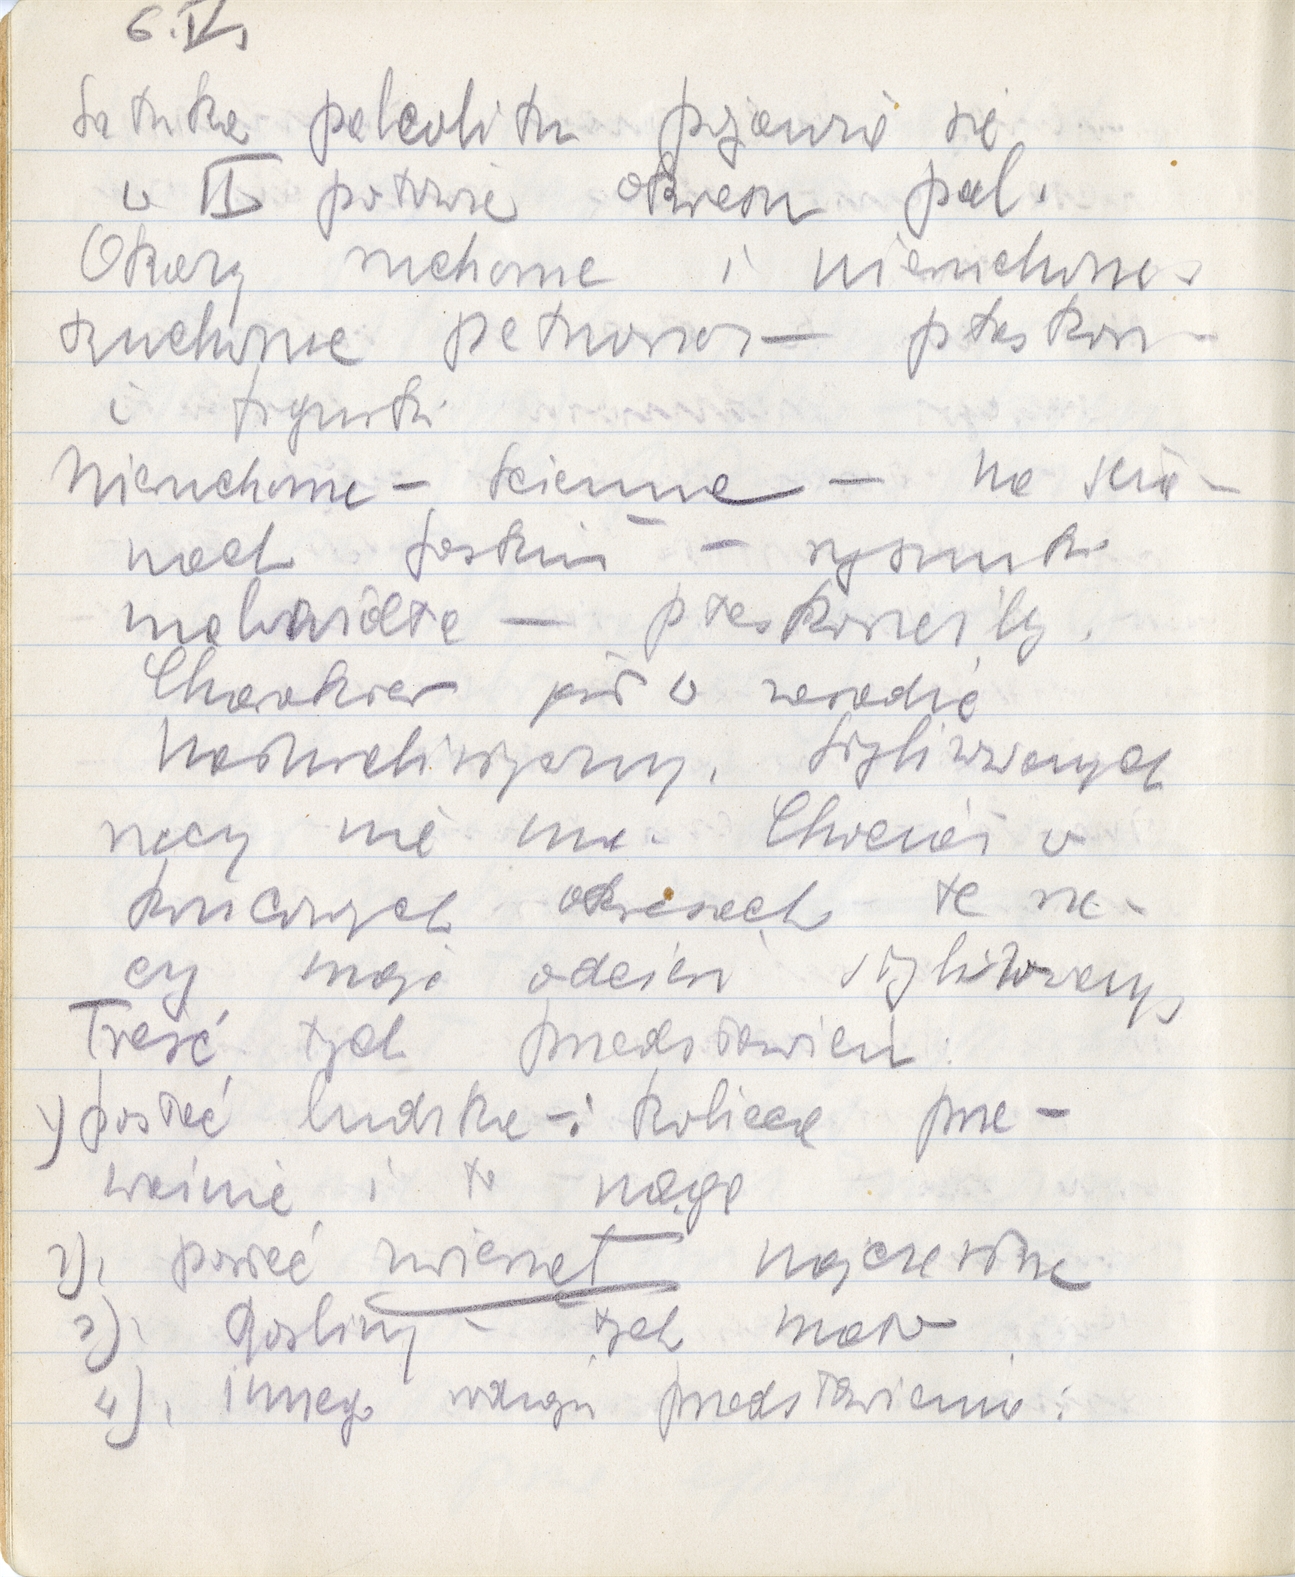 6.IV.
Sztuka paleolitu pojawia się
w II połowie okresu pal.
Okazy ruchome i nieruchome
ruchome pełnowar— płaskorz—
i figurki
Nieruchome – ścienne — na ścia–
nach jaskiń – rysunki
malowidła — płaskorzeźby.
Charakter jest w zasadzie
naturalistyczny. Stylizowanych
rzeczy nie ma. Chociaż w
końcowych okresach te rze-
czy mają odcień stylizowany,
Treść tych przedstawień:
1) postać ludzka – i kobieca prze–
ważnie i to naga
2). postać zwierząt najczęstsze
3). Rośliny – tych mało
4). innego rodzaju przedstawienia: